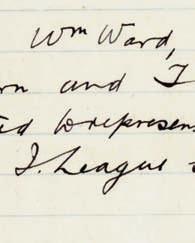 Wm Ward,
rn and J
ted to represen
J. League